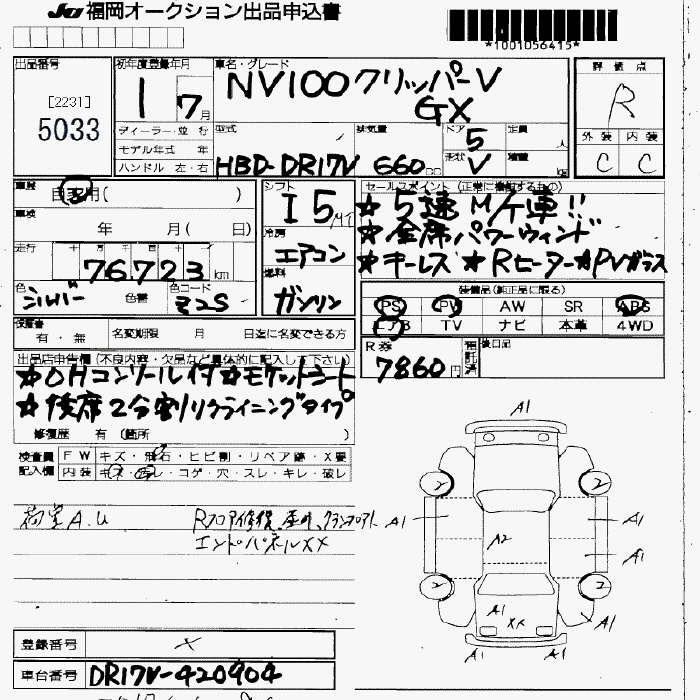 JU 福岡オークション出品申込書
*1001056415*
出品番号
[2231]
5033
初年度登録年月
1 7月
車名・グレード
NV100クリッパーV
GX
ディーラー・並行
モデル年式 年
ハンドル 左・右
型式
HBD-DR17V
排気量
660cc
ドア
5
形状
V
定員
人
積載
kg
評価点
R
外装 内装
C C
車歴
自家用( )
車検
年 月( 日)
走行
76,723km
色
シルバー
色替
色コード
Z2S
シフト
I5
冷房
エアコン
燃料
ガソリン
セールスポイント (正常に機能するもの)
★5速M/T車!!
★全席パワーウィンド
★キーレス ★Rヒーター★PVガラス
装備品(純正品に限る)
PS PW AW SR ABS
エアB TV ナビ 本革 4WD
保証書
有・無
名変期限 月 日迄に名変できる方
R券
7860円
預託済
後日品
出品店申告欄 (不良内容・欠品など具体的に記入して下さい)
★OHコンソール付★モケットシート
★後席2分割リクライニングタイプ
修復歴 有 (箇所 )
検査員記入欄
FW キズ・飛石・ヒビ割・リペア跡・X要
内装 キズ・汚れ・コゲ・穴・スレ・キレ・破レ
荷室A.U
Rフロア修復、
エンドパネルXX
A1
2 2
A1 A1
A2
A1
2 2
A1 XX A1
A1 A1
登録番号
車台番号
DR17V-420904